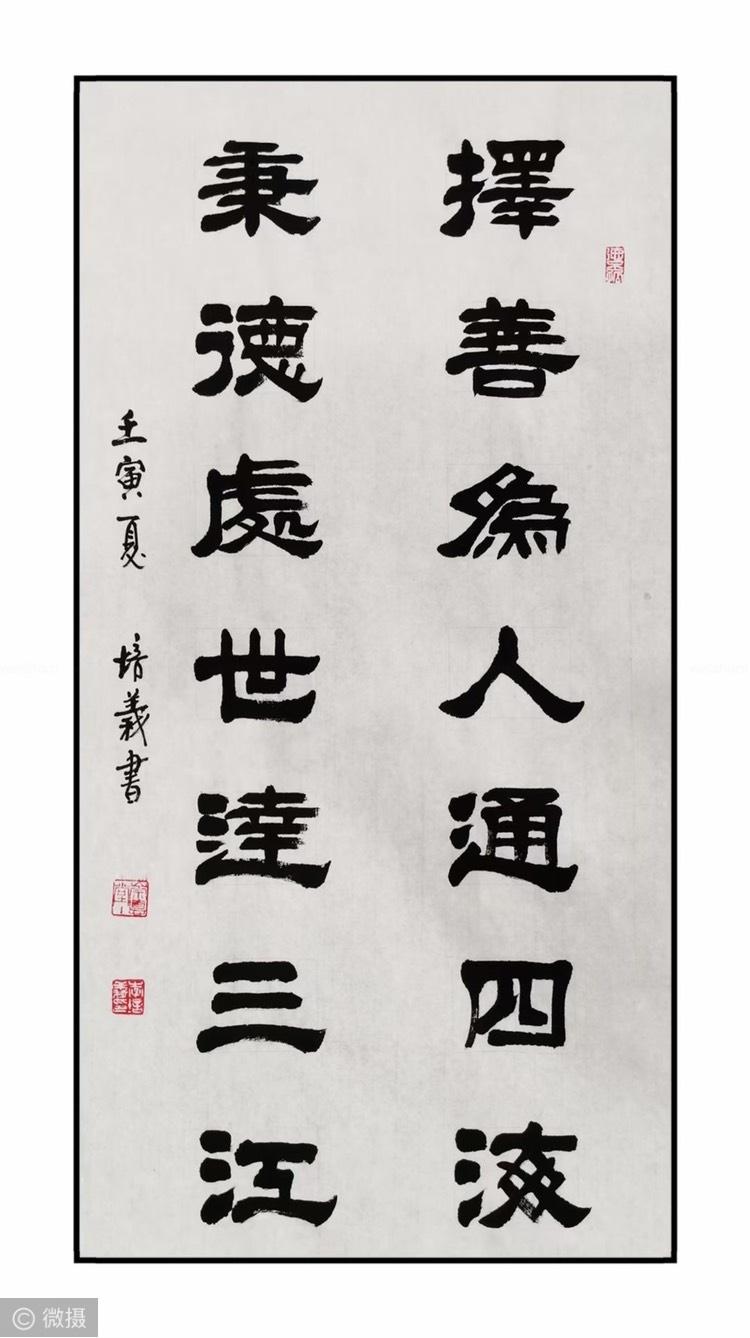 擇善為人通四海
秉德處世達三江
壬寅夏 培義書
© 微摄